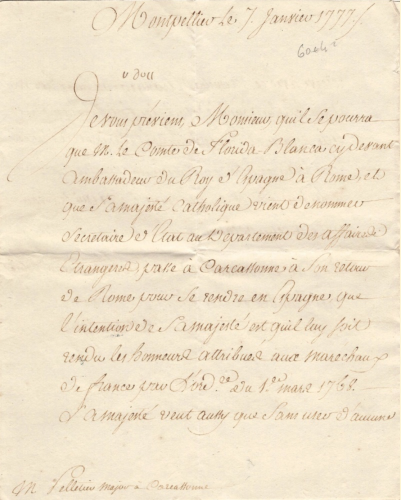 Montpellier le 7. Janvier 1777
Je vous préviens, Monsieur, qu'il se pourra
que M. le Comte de Florida Blanca cy devant
ambassadeur du Roy d'Espagne à Rome, et
que Sa majesté Catholique vient de nommer
Secretaire d'Etat au Departement des affaires
Etrangeres passe à Carcassonne à Son retour
de Rome pour se rendre en Espagne, que
l'intention de Sa majesté est qu'il luy soit
rendu les honneurs attribués aux marechaux
de france par l'ord.ce du 1.er mars 1768.
Sa majesté veut aussy que Sans user d'aucune
M. Pelletier major à Carcassonne